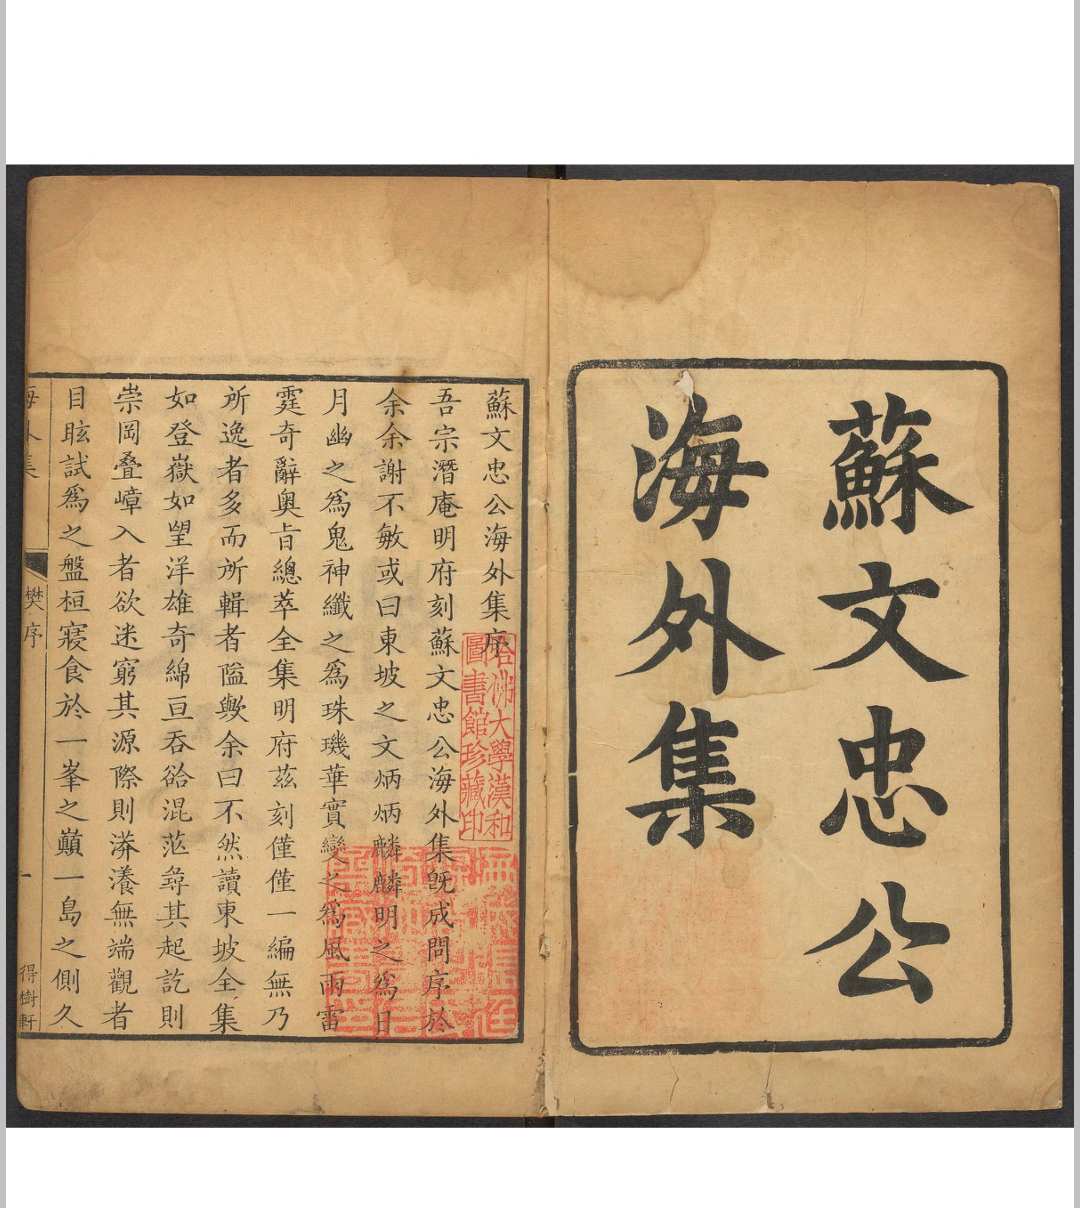 蘇文忠公
海外集
蘇文忠公海外集序
吾宗潛庵明府刻蘇文忠公海外集既成問序於
余余謝不敏或曰東坡之文炳炳麟麟明之為日
月幽之為鬼神纖之為珠璣華實變之為風雨雷
霆奇辭奥旨總萃全集明府茲刻僅僅一編無乃
所逸者多而所輯者隘歟余曰不然讀東坡全集
如登嶽如望洋雄奇綿亘吞哈混茫尋其起訖則
崇岡疊嶂入者欲迷窮其源際則漭瀁無端觀者
目眩試爲之盤桓寢食於一峯之巔一島之側久
海外集
樊序
一
得樹軒
哈佛大學漢和
圖書館珍藏印